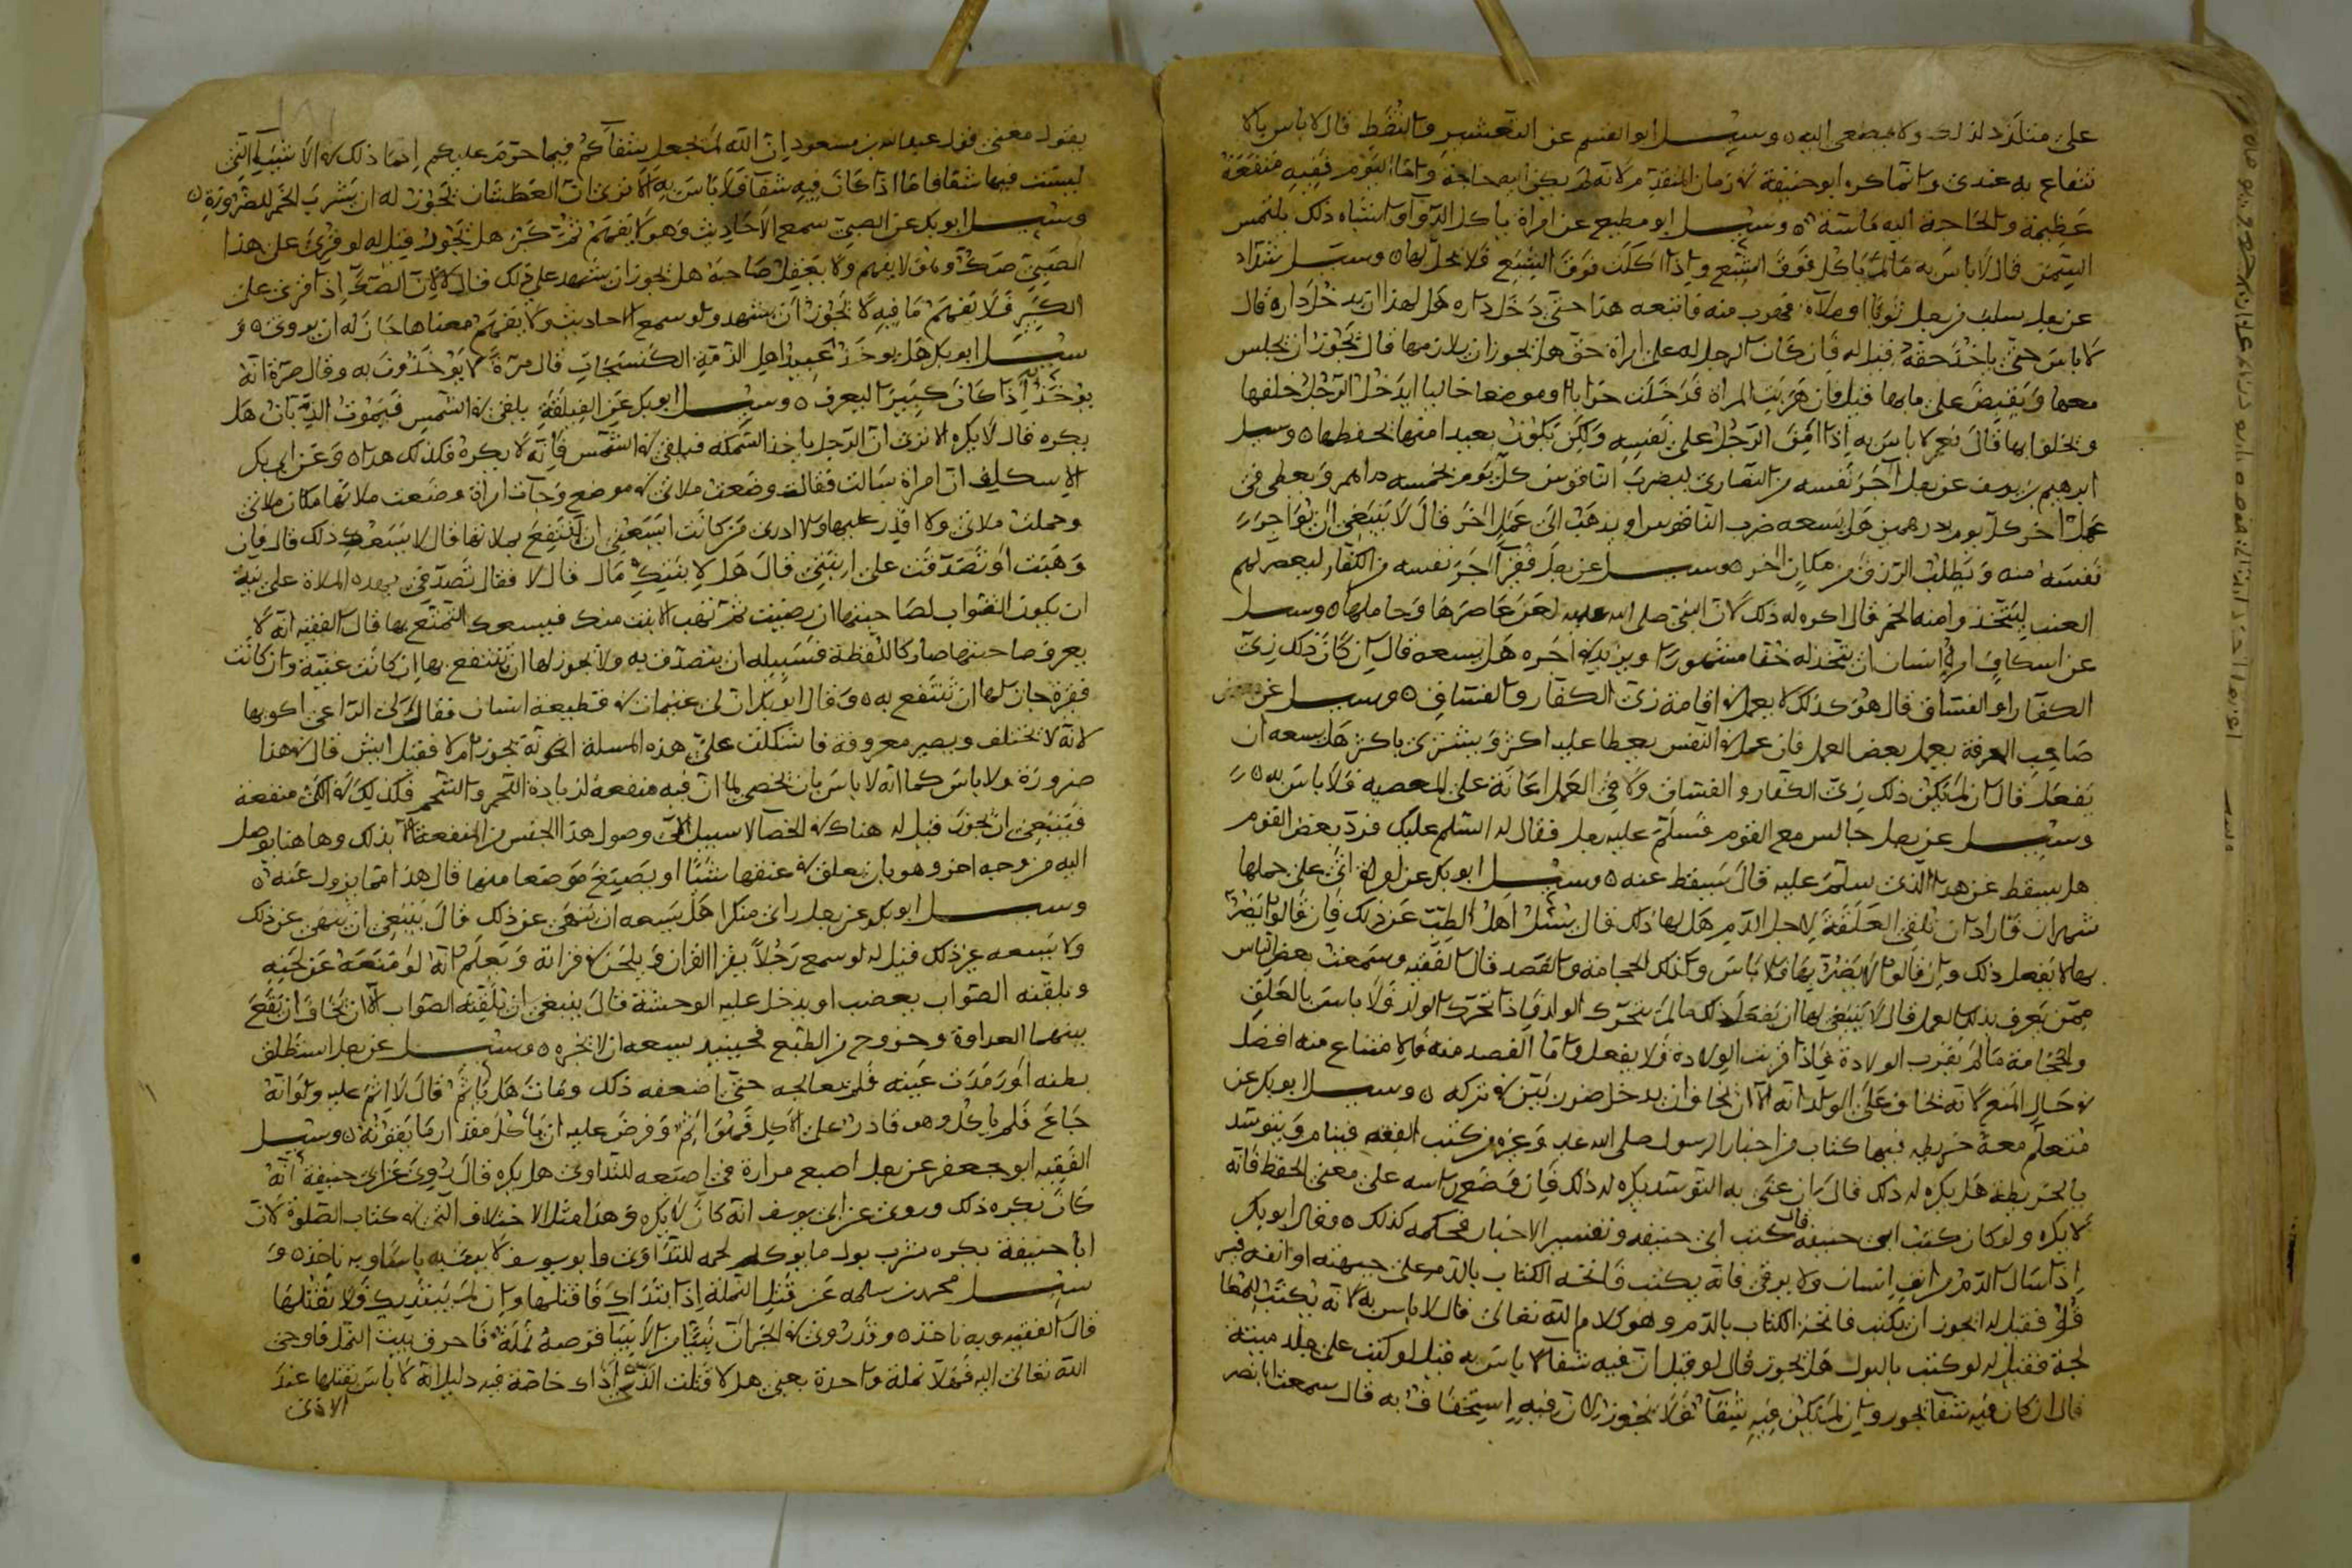 على متلذذ لذلك ولا يصغى اليه ٥ وسيل ابو القسم عن التعشير والنقط قال لا باس بالا
نتفاع به عندي وانما كره ابو حنيفة في زمان المتقدم لانه لم يكن اليه حاجة واما اليوم ففيه منفعة
عظيمة والحاجة اليه ماسة ٥ وسيل ابو مطيع عن امراة ياكل الدوا واشباه ذلك يلتمس
السمن قال لا باس به مالم ياكل فوق الشبع واذا اكلت فوق الشبع فلا يحل لها ٥ وسيل شداد
عن رجل سلب من رجل ثوبا او ملاة فهرب منه فاتبعه هذا حتى دخل داره هل لهذا ان يدخل داره قال
لا باس حتى ياخذ حقه قيل له فان كان الرجل له على امراة حق هل يجوز ان يلازمها قال يجوز ان يجلس
معها ويقبض على مابها قيل فان هربت المراة قد دخلت خرابا او موضعا خاليا ايدخل الرجل خلفها
ويخلوا بها قال نعم لا باس به اذا امن الرجل على نفسه ولكن يكون بعيدا منها يحفظها ٥ وسيل
ابرهيم بن يوسف عن رجل آجر نفسه من النصارى ليضرب الناقوس كل يوم بخمسه دراهم ويعطى في
عمل آخر كل يوم درهمين هل يسعه ضرب الناقوس او يذهب الى عمل آخر قال لا ينبغي ان يؤاجر
نفسه منه ويطلب الرزق من مكان آخر ٥ وسيل عن رجل فقير آجر نفسه من الكفار ليعصر لهم
العنب ليتخذوا منه الخمر قال اكره له ذلك لان النبي صلى الله عليه لعن عاصرها وحاملها ٥ وسيل
عن اسكاف امره انسان ان يتخذ له خفا مشهورا ويزيد في اجره هل يسعه قال ان كان ذلك زي
الكفار او الفساق قال هو كذلك لا يعمل في اقامة زي الكفار والفساق ٥ وسيل عن
صاحب الحرفة يعمل بعض العمل فان عمل في النفس يعطا عليه اكثر ويشترى باكثر هل يسعه ان
يفعل قال ان لم يكن ذلك زي الكفار والفساق ولا في العمل اعانة على المعصيه فلا باس به ٥
وسيل عن رجل جالس مع القوم فسلم عليه رجل فقال له السلم عليك فرد بعض القوم
هل يسقط عن هذا الذي سلم عليه قال يسقط عنه ٥ وسيل ابو بكر عن امراة اتى على حملها
شهران فاراد ان تلقى العلقة لاجل الدم هل لها ذلك قال يسئل اهل الطب عن ذلك فان قالوا يضر
بها لا يفعل ذلك وان قالوا لا يضر بها فلا باس وكذلك الحجامة والفصد قال الفقيه وسمعت بعض الناس
ممن يعرف بذلك العمل قال لا ينبغي لها ان يفعل ذلك مالم يتحرك الولد فاذا تحرك الولد فلا باس بالعلق
والحجامة مالم يقرب الولادة فاذا قربت الولادة فلا يفعل واما الفصد منه فالامتناع منه افضل
في حال المنع لانه يخاف على الولد انه الا ان يخاف ان يدخل ضرر بين في تركه ٥ وسيل ابو بكر عن
متعلم معه خريطه فيها كتاب من اخبار الرسول صلى الله عليه وغيره من كتب الفقه فينام ويتوسد
بالخريطة هل يكره له ذلك قال ان عنى به التوسد يكره له ذلك فان وضع راسه على معنى الحفظ فانه
لا يكره ولو كان كتب ابي حنيفه قال كتب ابي حنيفه وتفسير الاخبار محكمه كذلك ٥ وقال ابو بكر
اذا سال الدم من انف انسان ولا يرقى فانه يكتب فاتحة الكتاب بالدم على جبهته او انفه
فقيل له ايجوز ان يكتب فاتحة الكتاب بالدم وهو كلام الله تعالى قال لا باس به لانه يكتب
فقيل له لو كتب بالبول هل يجوز قال لو قيل ان فيه شفا لا باس به قيل لو كتب على جلد ميتة
قال ان كان فيه شفا يجوز وان لم يكن فيه شفا فلا يجوز لان فيه استخفاف به قال سمعت ابا نصر
يقول معنى قول عبد الله بن مسعود ان الله لم يجعل شفاكم فيما حرم عليكم انما ذلك في الاشيا التي
ليست فيها شفا فاما اذا كان فيه شفا فلا باس به الا ترى ان العطشان يجوز له ان يشرب الخمر للضرورة ٥
وسيل ابو بكر عن الصبي سمع الاحاديث وهو لا يفهم ثم كبر هل يجوز قيل له لو قرئ على هذا
الصبي صك وهو لا يفهم ولا يعقل صاحبه هل يجوز ان يشهد على ذلك قال لا لان الصك اذا قرئ على
الكبير فلا يفهم ما فيه لا يجوز ان يشهد ولو سمع احاديث ولا يفهم معناها جاز له ان يروى ٥ و
سيل ابو بكر هل يوخذ عبيد اهل الذمة الكستجات قال مرة لا يوخذون به وقال مرة انه
يوخذ اذا كان كبيرا ليعرف ٥ وسيل ابو بكر عن الفيلقة يلقى في الشمس فيموت الديدان هل
يكره قال لا يكره الا ترى ان الرجل ياخذ السمكة فيلقى في الشمس فانه لا يكره فكذلك هذا ٥ وعن ابي بكر
الاسكاف ان امراة سالت فقالت وضعت ملاتي في موضع وجات امراة وضعت ملاتها مكان ملاتي
وحملت ملاتي ولا اقدر عليها ولا ادرى من كانت ايسعني ان انتفع بملاتها قال لا يسعك ذلك قال فان
وهبت او تصدقت على ابنتي قال هل لابنتك مال قال لا فقال تصدقي بهذه الملاة على نية
ان يكون الثواب لصاحبتها ان رضيت ثم تهب الابنت منك فيسعك التمتع بها قال الفقيه انه لا
يعرف صاحبتها صار كاللقطة فسبيله ان يتصدق به ولا يجوز لها ان ينتفع بها ان كانت غنية وان كانت
فقيرة جاز لها ان تنتفع به ٥ وقال ابو بكر ان لي غنيمات في قطيعة انسان فقال لى الراعى اكويها
لانه لا تختلف ويصير معروفة فاشكلت علي هذه المسلة انكونه يجوز ام لا فقيل ايش قال في هذا
ضرورة ولا باس كما انه لا باس بان يخصي لما ان فيه منفعة لزيادة اللحم والشحم فكذلك في الكى منفعة
فينبغي ان يجوز قيل له هناك في الخصا لا سبيل الى وصول هذا الجنس من المنفعة الا بذلك وهاهنا يوصل
اليه من وجه اخر وهو بان يعلق في عنقها شيئا او يصبغ موضعا منها قال هذا مما يزول عنه ٥
وسيل ابو بكر عن رجل راى منكرا هل يسعه ان ينهى عن ذلك قال ينبغي ان ينهى عن ذلك
ولا يسعه غير ذلك قيل له لو سمع رجلا يقرا القران ويلحن في قراته ويعلم انه لو منعه عن لحنه
ويلقنه الصواب يغضب او يدخل عليه الوحشة قال ينبغي ان يلقنه الصواب الا ان يخاف ان يقع
بينهما العداوة وخروج من الطبع فحينيذ يسعه ان لا يخبره ٥ وسيل عن رجل استطلق
بطنه او رمدت عينه فلم يعالجه حتى اضعفه ذلك ومات هل ياثم قال لا اثم عليه ولو انه
جاع فلم ياكل وهو قادر على الاكل فمات اثم وفرض عليه ان ياكل مقدار ما يقوته ٥ وسيل
الفقيه ابو جعفر عن رجل اصبع مرارة في اصبعه للتداوى هل يكره قال روى عن ابي حنيفة انه
كان يكره ذلك وروى عن ابي يوسف انه كان لا يكره وهذا مثل الاختلاف التى في كتاب الصلوة لان
ابا حنيفة يكره شرب بول ما يوكل لحمه للتداوى وابو يوسف لا يرى به باسا وبه ناخذ ٥ و
سيل محمد بن سلمه عن قتل النملة اذا ابتداك فاقتلها وان لم يبتديك فلا تقتلها
قال الفقيه وبه ناخذ ٥ وقد روى في الخبر ان نبيا من الانبيا قرصه نملة فاحرق بيت النمل فاوحى
الله تعالى اليه فهلا نملة واحدة يعنى هلا قتلت التي آذاك خاصة فيه دليل انه لا باس بقتلها عند
الاذى